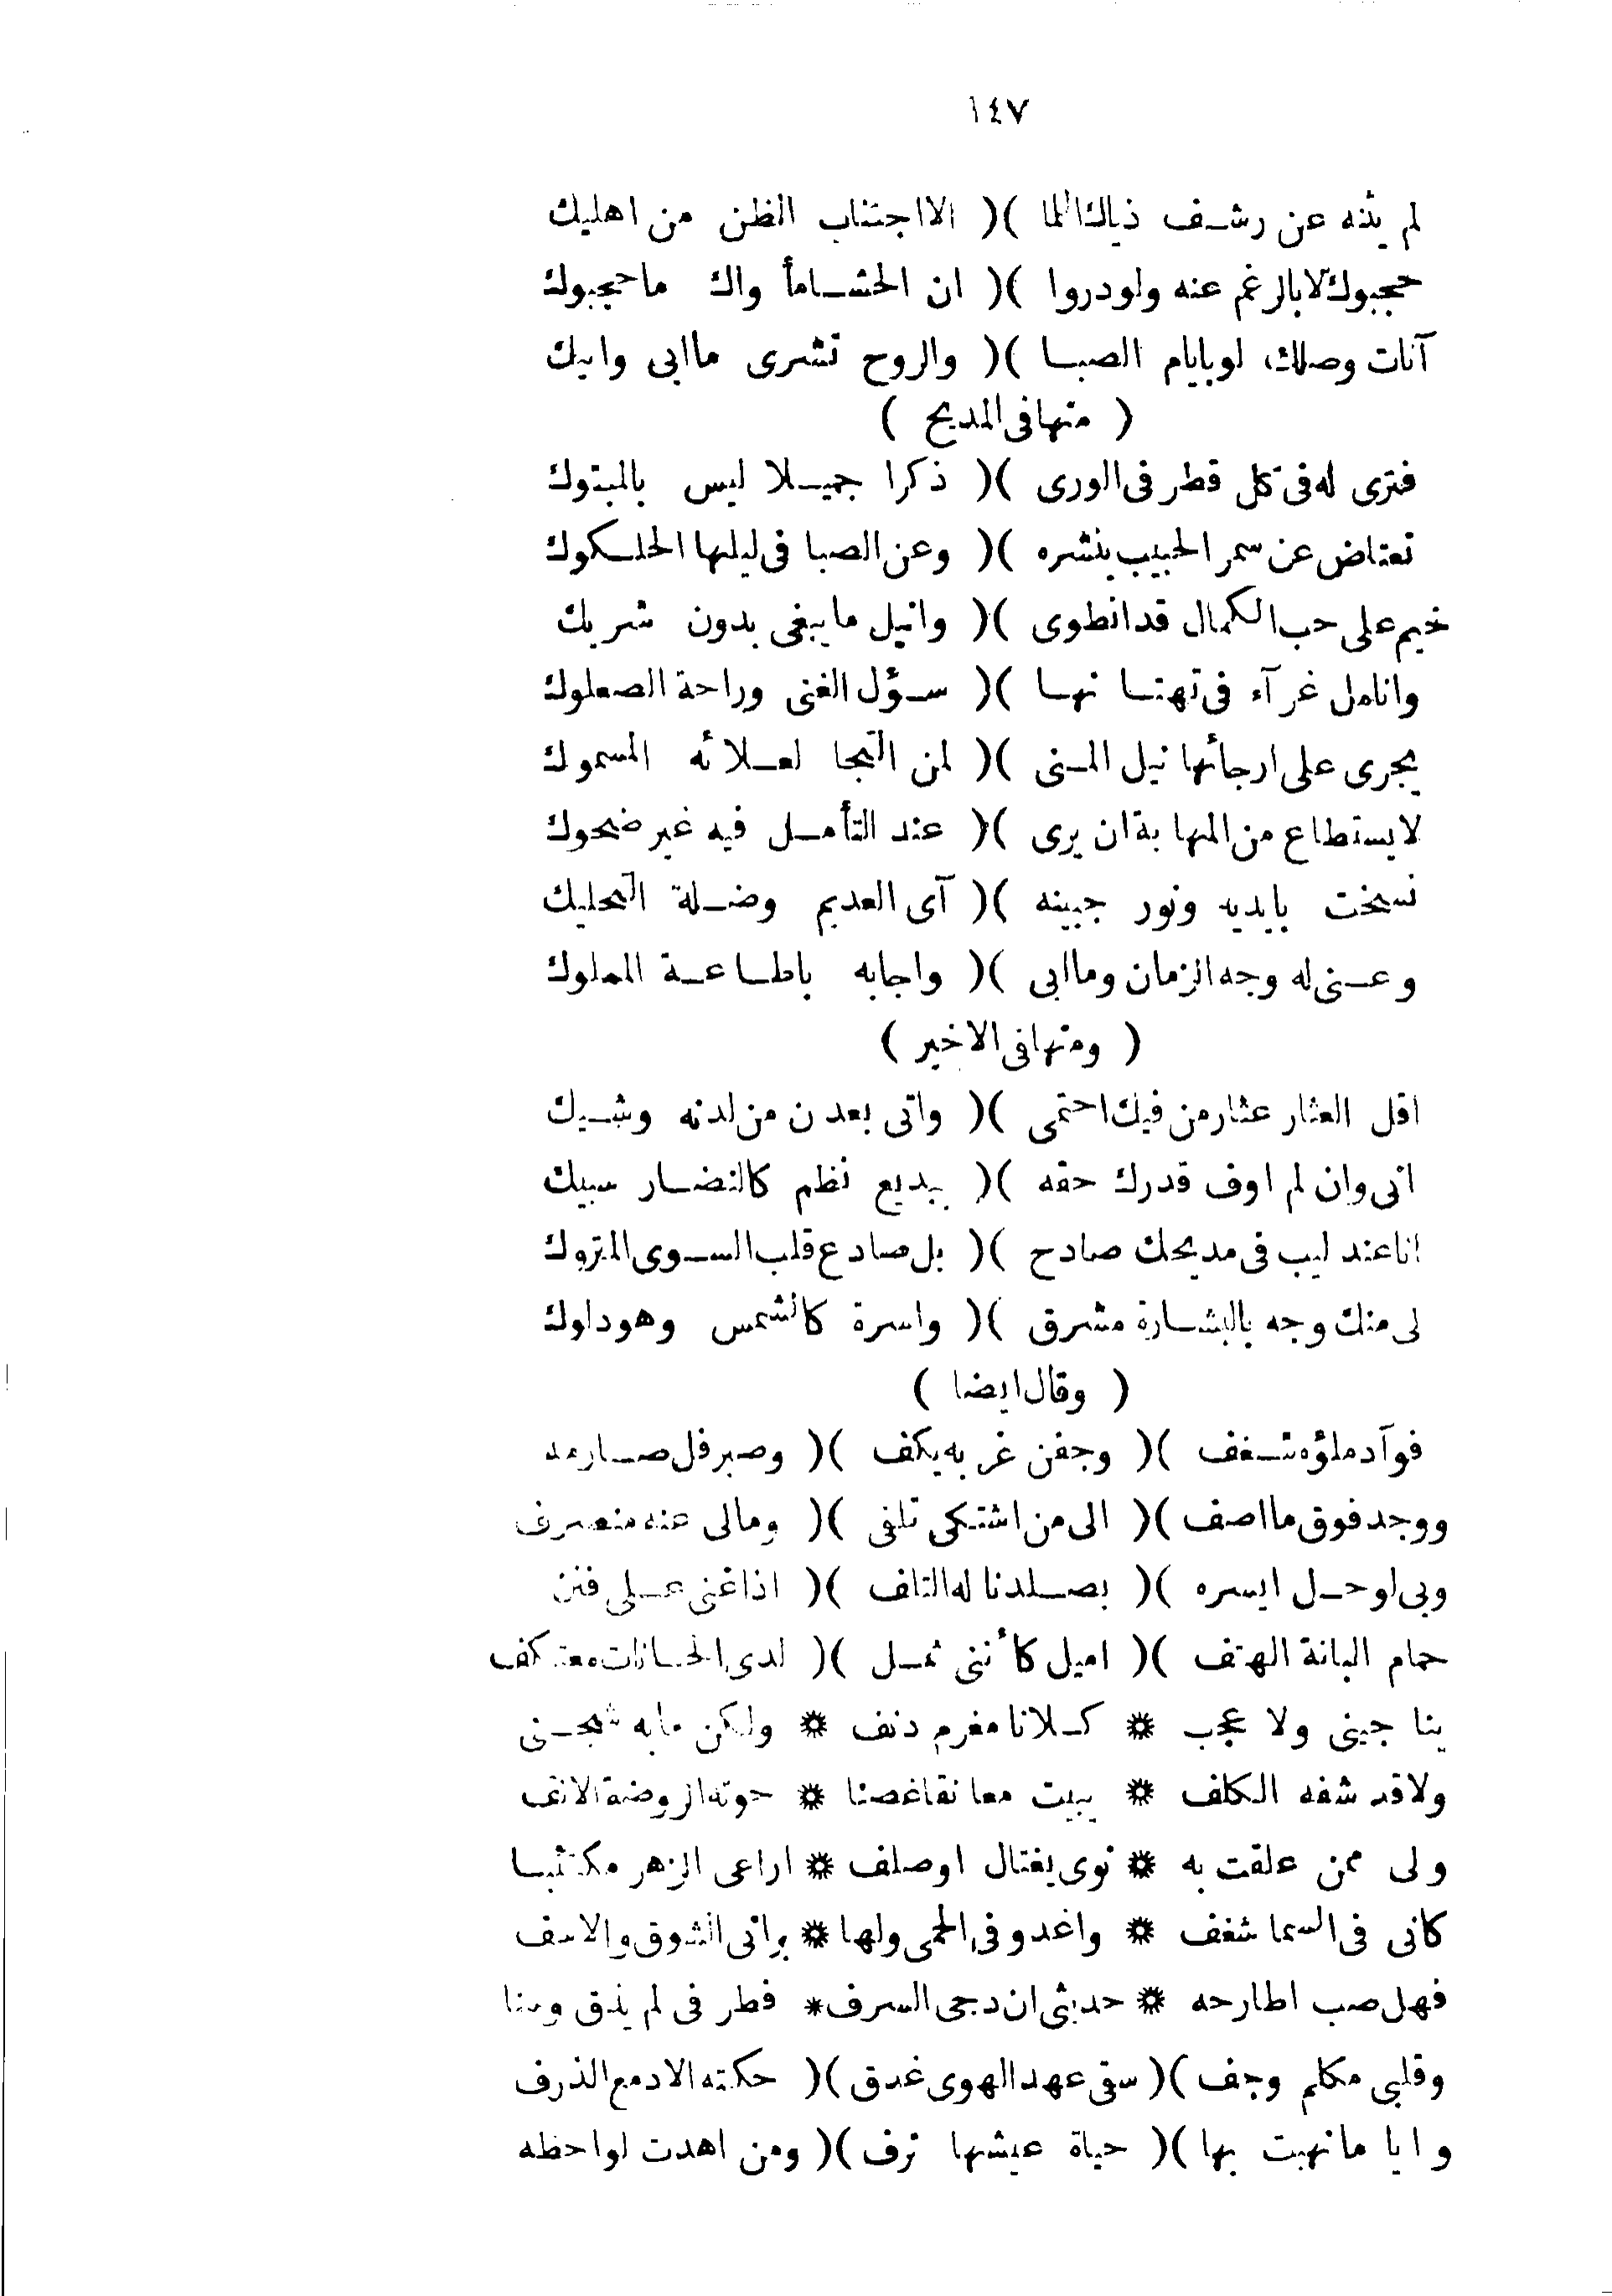 ١٤٧
لم يثنه عن رشف ذياك اللما )( الا اجتناب الظن من اهليك
حجبوك لا بالرغم عنه ولو دروا )( ان الحشا مأواك ما حجبوك
آنات وصلك لو بايام الصبا )( والروح تشرى ما ابى وابيك
( منها فى المديح )
فترى له فى كل قطر فى الورى )( ذكرا جميلا ليس بالمبتوك
تعتاض عن سمر الحبيب بنشره )( وعن الصبا فى ليلها الحلكوك
خيم على حب الكمال قد انطوى )( وانيل ما يبغى بدون شريك
وانامل غرآء فى تهتانها )( سؤل الغنى وراحة الصعلوك
يجرى على ارجائها نيل المنى )( لمن التجا لعلائه المسموك
لا يستطاع من المهابة ان يرى )( عند التأمل فيه غير ضحوك
نسخت بايديه ونور جبينه )( آى العديم وضلة الحليك
وعنى له وجه الزمان وما ابى )( واجابه باطاعة المملوك
( ومنها فى الاخير )
اقل العثار عثار من فيك احتمى )( واتى بعدن من لدنه وشيك
انى وان لم اوف قدرك حقه )( ببديع نظم كالنضار سبيك
انا عندليب فى مديحك صادح )( بل صادع قلب السوى المتروك
لى منك وجه بالبشارة مشرق )( واسرة كالشمس وهو دلوك
( وقال ايضا )
فوآد ملؤه شغف )( وجفن غربه يكف )( وصبر فل صارمه
ووجد فوق ما اصف )( الى من اشتكى تلفى )( ومالى عنه منصرف
وبى لوحل ايسره )( بصلد ناله التلف )( اذا غنى على فنن
حمام البانة الهتف )( اميل كأننى ثمل )( لدى الحانات معتكف
يناجينى ولا عجب * كلانا مغرم دنف * ولكن ما به شجنى
ولا قد شفه الكلف * يبيت معانقا غصنا * حوته الروضة الانف
ولى ممن علقت به * نوى يغتال او صلف * اراعى الزهر مكتئبا
كانى فى السما شغف * واغدو فى الحمى ولها * برانى الشوق والاسف
فهل صب اطارحه * حديثى ان دجى السرف * فطرفى لم يذق وسنا
وقلبى مكلم وجف )( سقى عهد الهوى غدق )( حكته الادمع الذرف
وايا ما نهبت بها )( حياة عيشها ترف )( ومن اهدت لواحظه